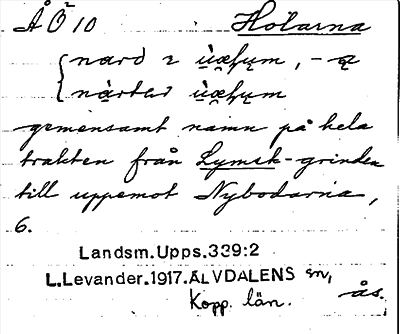 ÅÖ 10 Hötarna
nard
gemensamt namn på hela
trakten från Lymsk-grinden
till uppemot Nybodarna,
6.
Landsm.Upps.339:2
L.Levander.1917.ÄLVDALENS sn,
Kopp. län. ås.